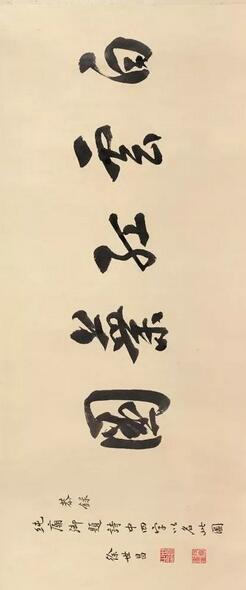 白雲紅圖
恭錄
純廟御題詩中四字以名此圖
徐世昌